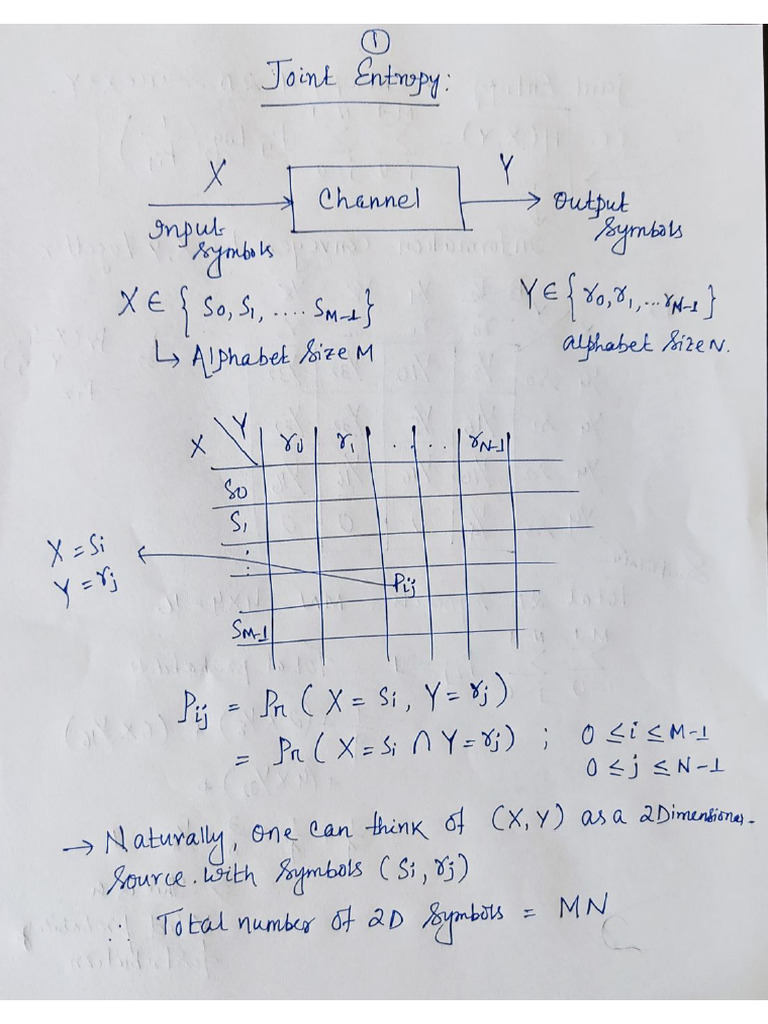 1
Joint Entropy:
X
Channel
Y
Input Symbols
Output Symbols
X ∈ { S0, S1, .... SM-1}
Y ∈ { r0, r1, ... rN-1}
↳ Alphabet Size M
alphabet size N.
X \ Y | r0 | r1 | . . | . . | rN-1 |
S0
S1
⋮
Pij
SM-1
X = Si
Y = rj
Pij = Pr ( X = Si , Y = rj )
= Pr ( X = Si ∩ Y = rj ) ; 0 ≤ i ≤ M-1
0 ≤ j ≤ N-1
→ Naturally, one can think of (X, Y) as a 2Dimensional
Source with Symbols ( Si, rj )
∴ Total number of 2D Symbols = MN